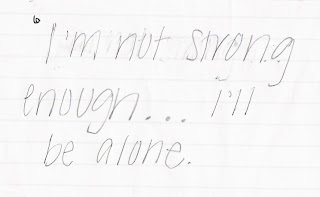 6
I'm not strong
enough... i'll
be alone.